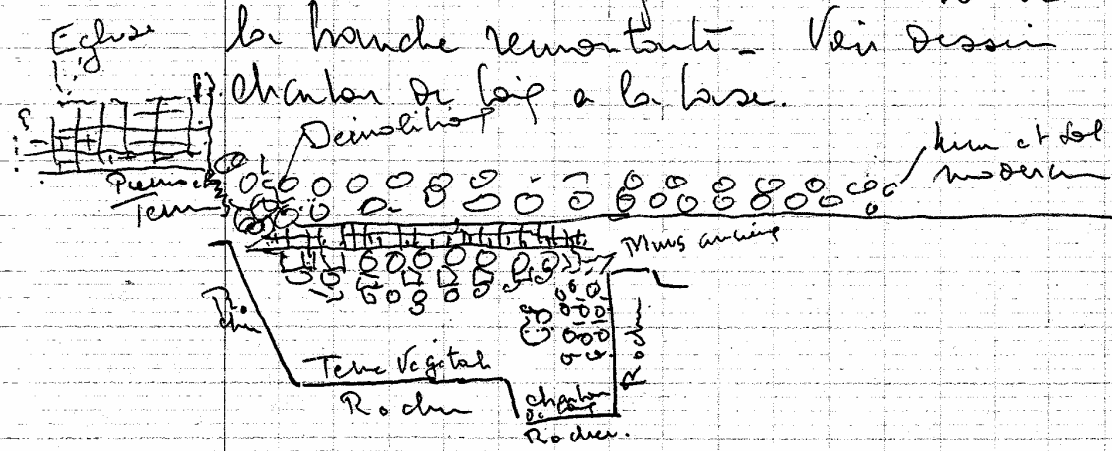 la branche remontante - Voir dessin
charbon de bois a la base.
Eglise
Démolition
Mur et sol
moderne
Pierres et
Terre
Murs anciens
Rocher
Rocher
Terre Végétale
Rocher
charbon
de bois
Rocher.